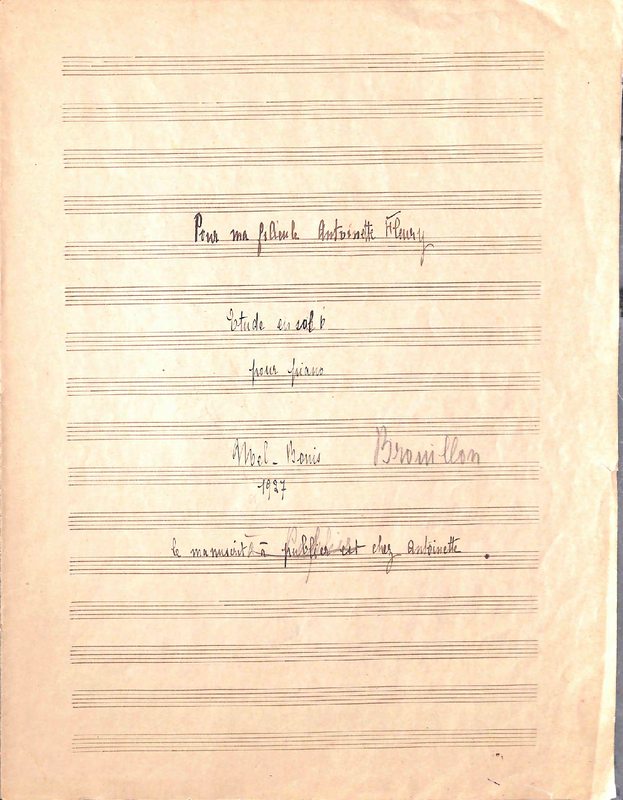 Pour ma filleule Antoinette Fleury
Etude en sol b
pour piano
Mel-Bonis
Brouillon
1927
le manuscrit à publier est chez Antoinette.